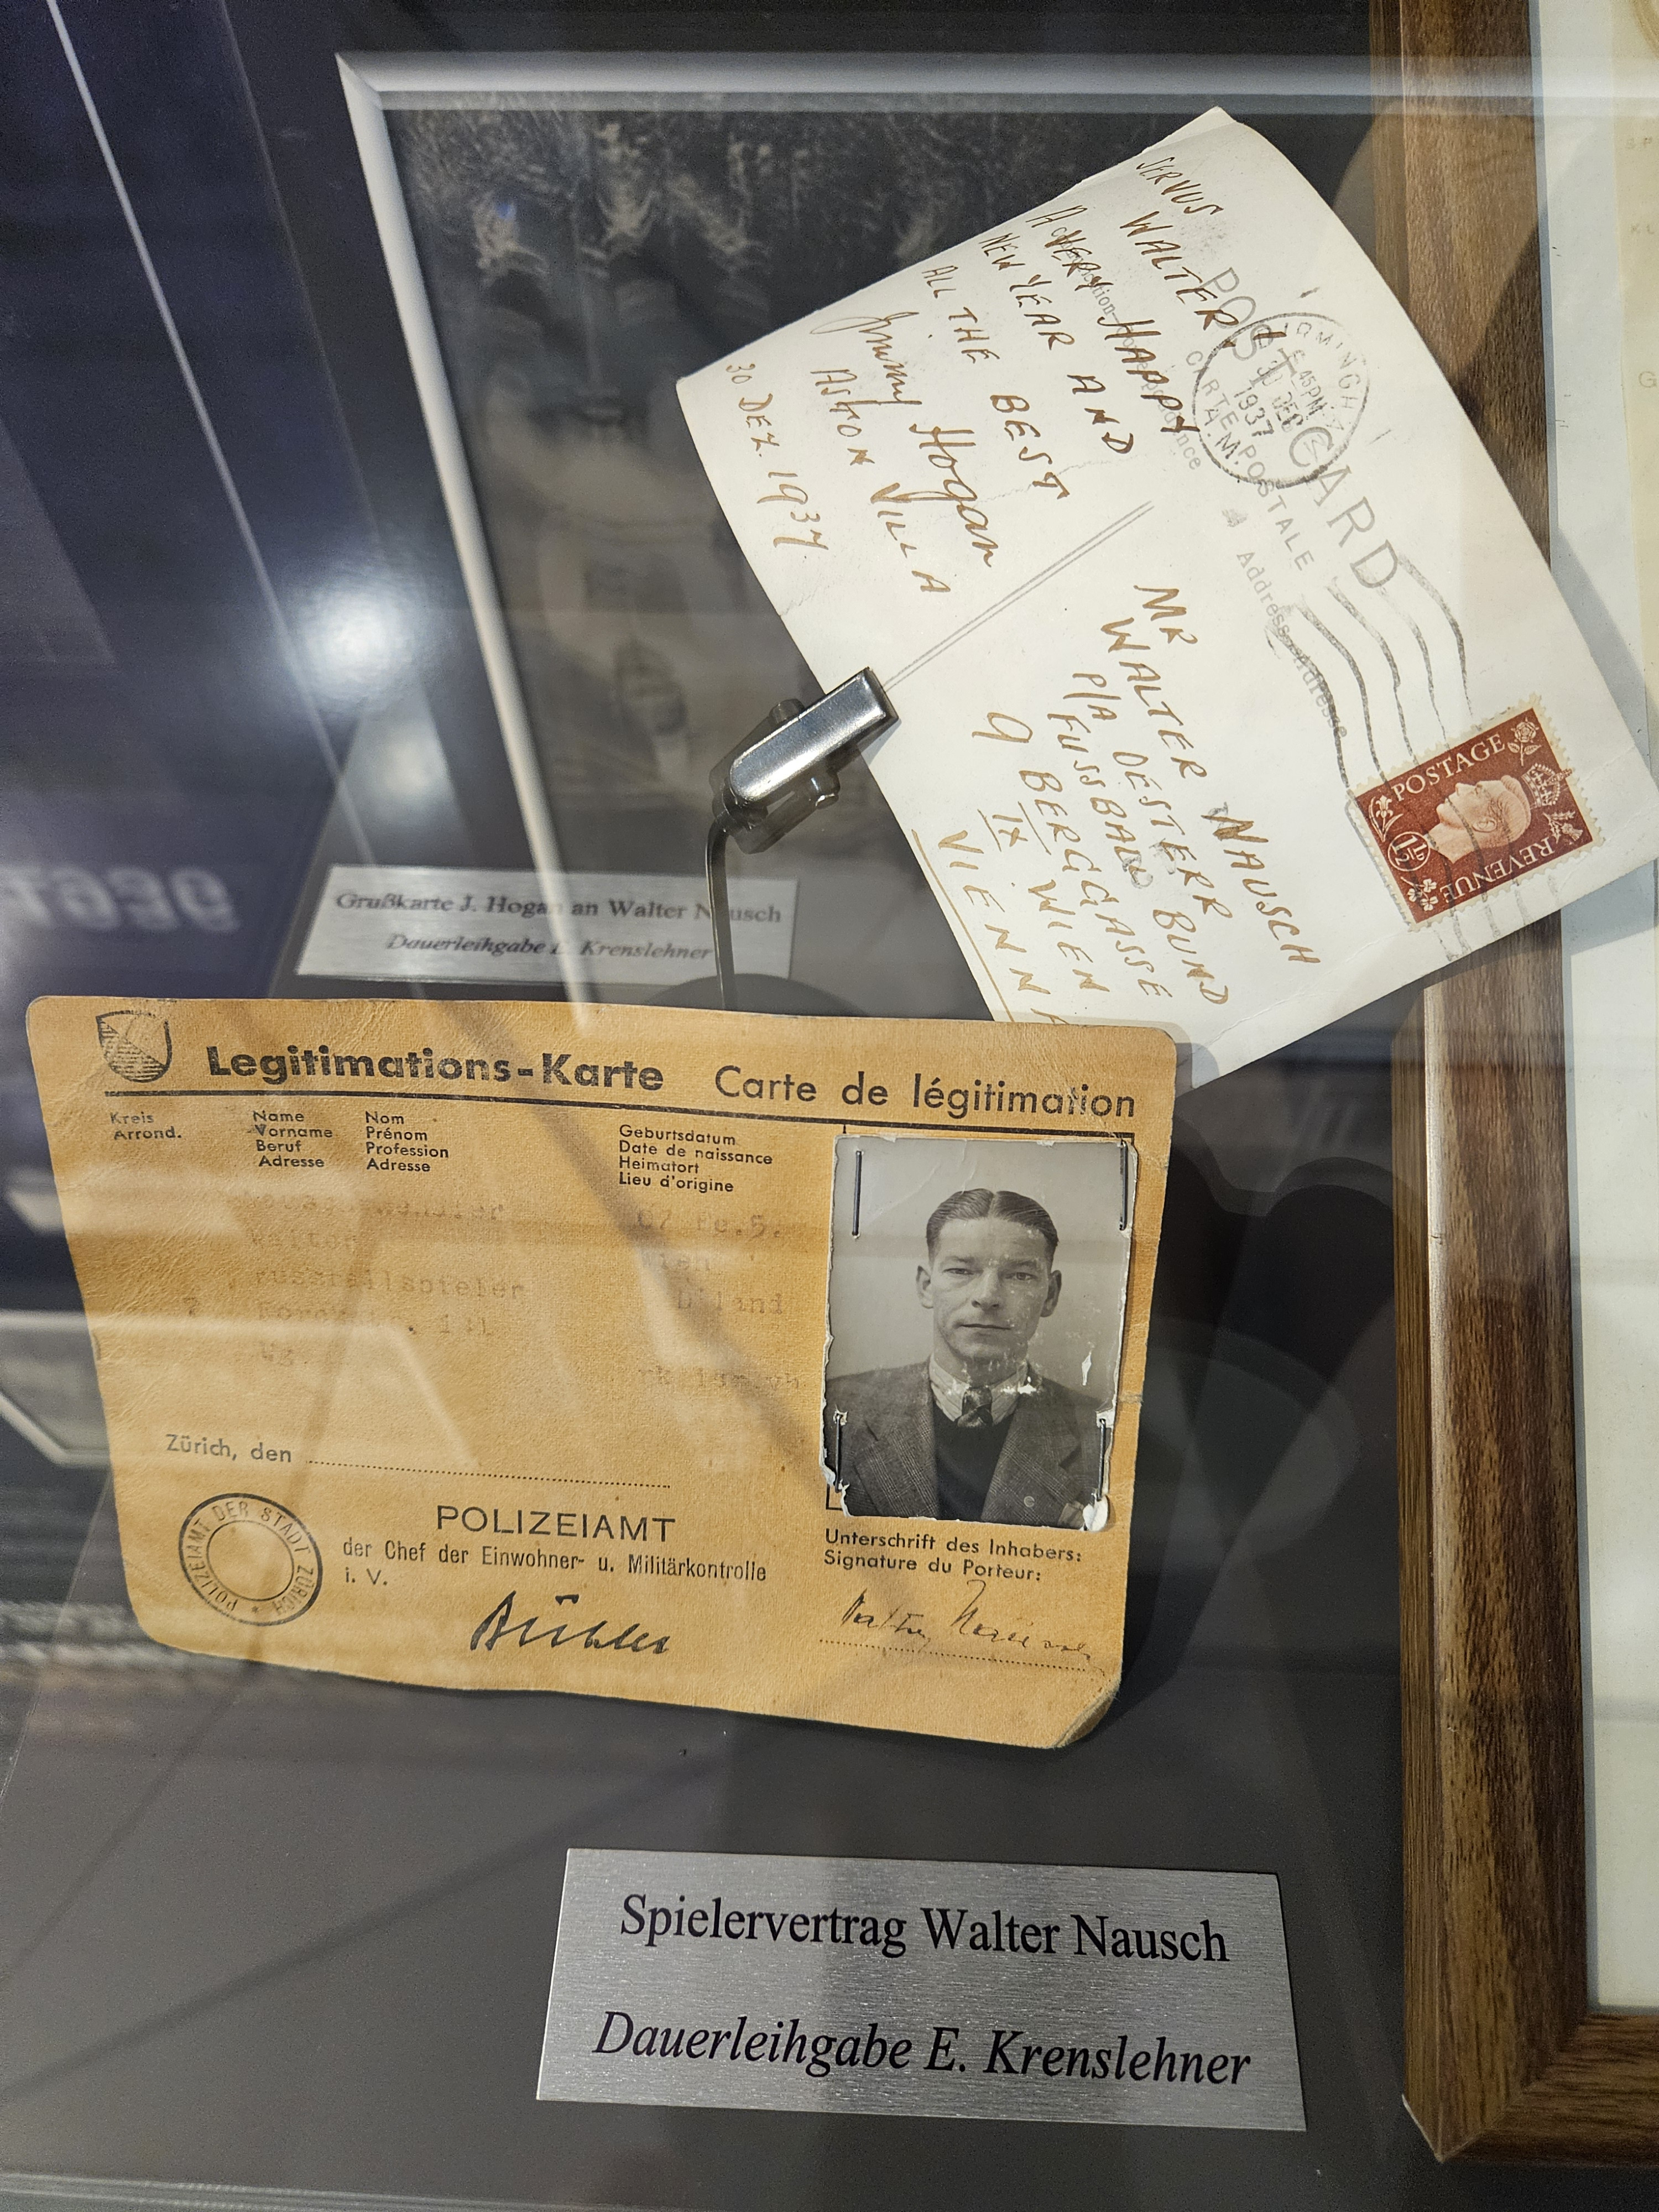 SERVUS WALTER!
A VERY HAPPY
NEW YEAR AND
ALL THE BEST
Jimmy Hogan
ASTON VILLA
30 DEZ. 1937
POST CARD
CARTE POSTALE
Address Adresse
45PM
30 DEC
1937
MR
WALTER NAUSCH
P/A OESTERR
FUSSBALL BUND
9 BERGGASSE
IX WIEN
VIENNA
POSTAGE
REVENUE
1½D
Grußkarte J. Hogan an Walter Nausch
Dauerleihgabe E. Krenslehner
Legitimations-Karte Carte de légitimation
Kreis
Arrond.
Name Nom
Vorname Prénom
Beruf Profession
Adresse Adresse
Geburtsdatum
Date de naissance
Heimatort
Lieu d'origine
Walter
Wien
Zürich, den
POLIZEIAMT DER STADT ZÜRICH
POLIZEIAMT
der Chef der Einwohner- u. Militärkontrolle
i. V.
Unterschrift des Inhabers:
Signature du Porteur:
Spielervertrag Walter Nausch
Dauerleihgabe E. Krenslehner